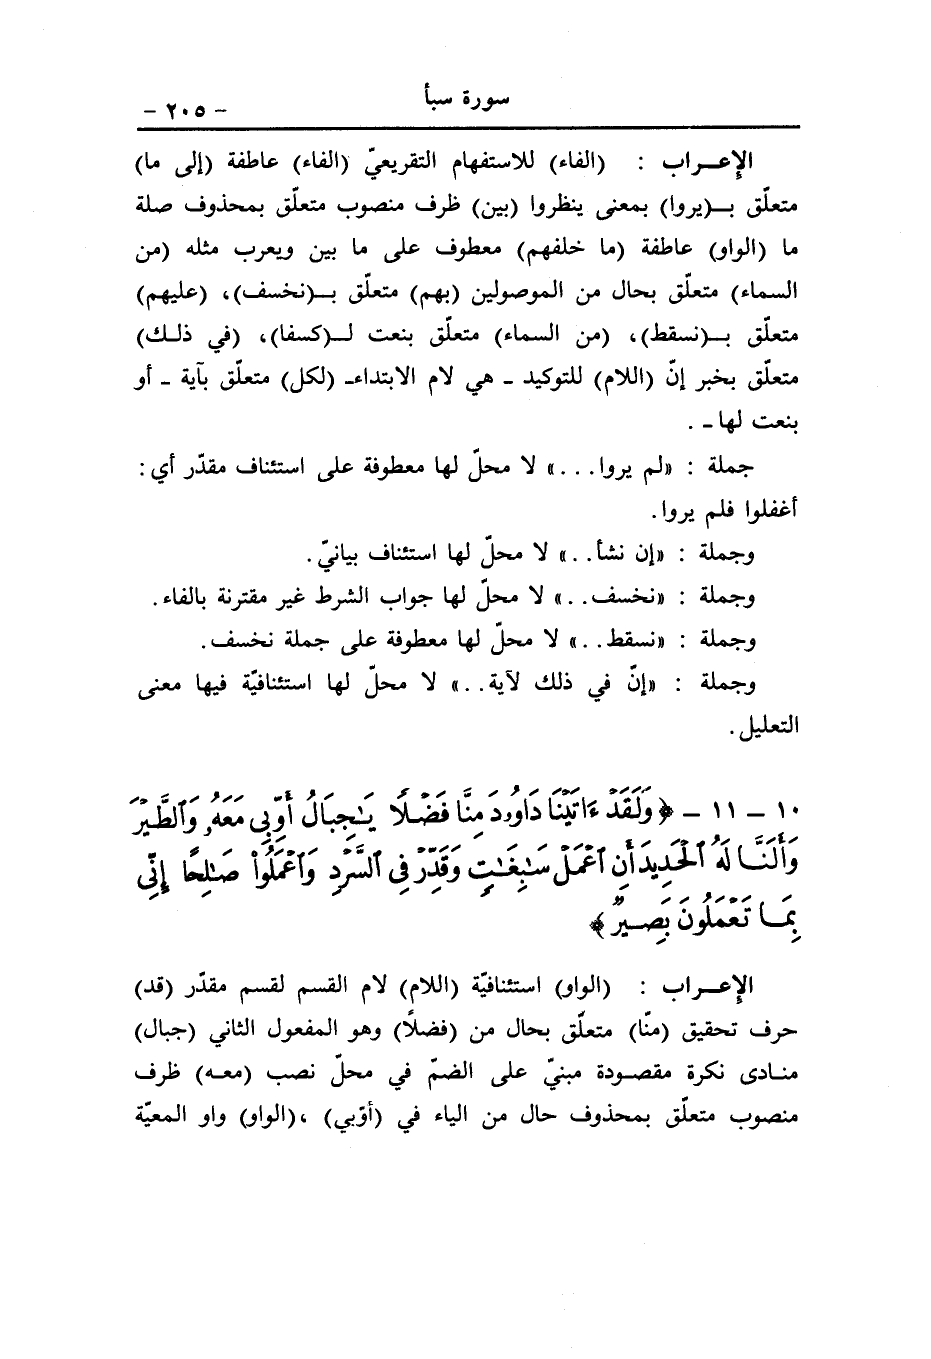 سورة سبأ
- ٢٠٥ -
الإعـراب : (الفاء) للاستفهام التقريعيّ (الفاء) عاطفة (إلى ما)
متعلّق بـ(يروا) بمعنى ينظروا (بين) ظرف منصوب متعلّق بمحذوف صلة
ما (الواو) عاطفة (ما خلفهم) معطوف على ما بين ويعرب مثله (من
السماء) متعلّق بحال من الموصولين (بهم) متعلّق بـ(نخسف)، (عليهم)
متعلّق بـ(نسقط)، (من السماء) متعلّق بنعت لـ(كسفا)، (في ذلك)
متعلّق بخبر إنّ (اللام) للتوكيد ـ هي لام الابتداءـ (لكل) متعلّق بآية ـ أو
بنعت لها ـ .
جملة : «لم يروا...» لا محلّ لها معطوفة على استئناف مقدّر أي :
أغفلوا فلم يروا.
وجملة : «إن نشأ..» لا محلّ لها استئناف بيانيّ.
وجملة : «نخسف..» لا محلّ لها جواب الشرط غير مقترنة بالفاء.
وجملة : «نسقط..» لا محلّ لها معطوفة على جملة نخسف.
وجملة : «إنّ في ذلك لآية..» لا محلّ لها استئنافيّة فيها معنى
التعليل.
١٠ ـ ١١ ـ ﴿ وَلَقَدْ ءَاتَيْنَا دَاوُۥدَ مِنَّا فَضْلًا يَـٰجِبَالُ أَوِّبِى مَعَهُۥ وَٱلطَّيْرَ
وَأَلَنَّا لَهُ ٱلْحَدِيدَ أَنِ ٱعْمَلْ سَـٰبِغَـٰتٍ وَقَدِّرْ فِى ٱلسَّرْدِ وَٱعْمَلُوا۟ صَـٰلِحًا إِنِّى
بِمَا تَعْمَلُونَ بَصِيرٌ ﴾
الإعـراب : (الواو) استئنافيّة (اللام) لام القسم لقسم مقدّر (قد)
حرف تحقيق (منّا) متعلّق بحال من (فضلًا) وهو المفعول الثاني (جبال)
منادى نكرة مقصودة مبنيّ على الضمّ في محلّ نصب (معه) ظرف
منصوب متعلّق بمحذوف حال من الياء في (أوّبي) ،(الواو) واو المعيّة